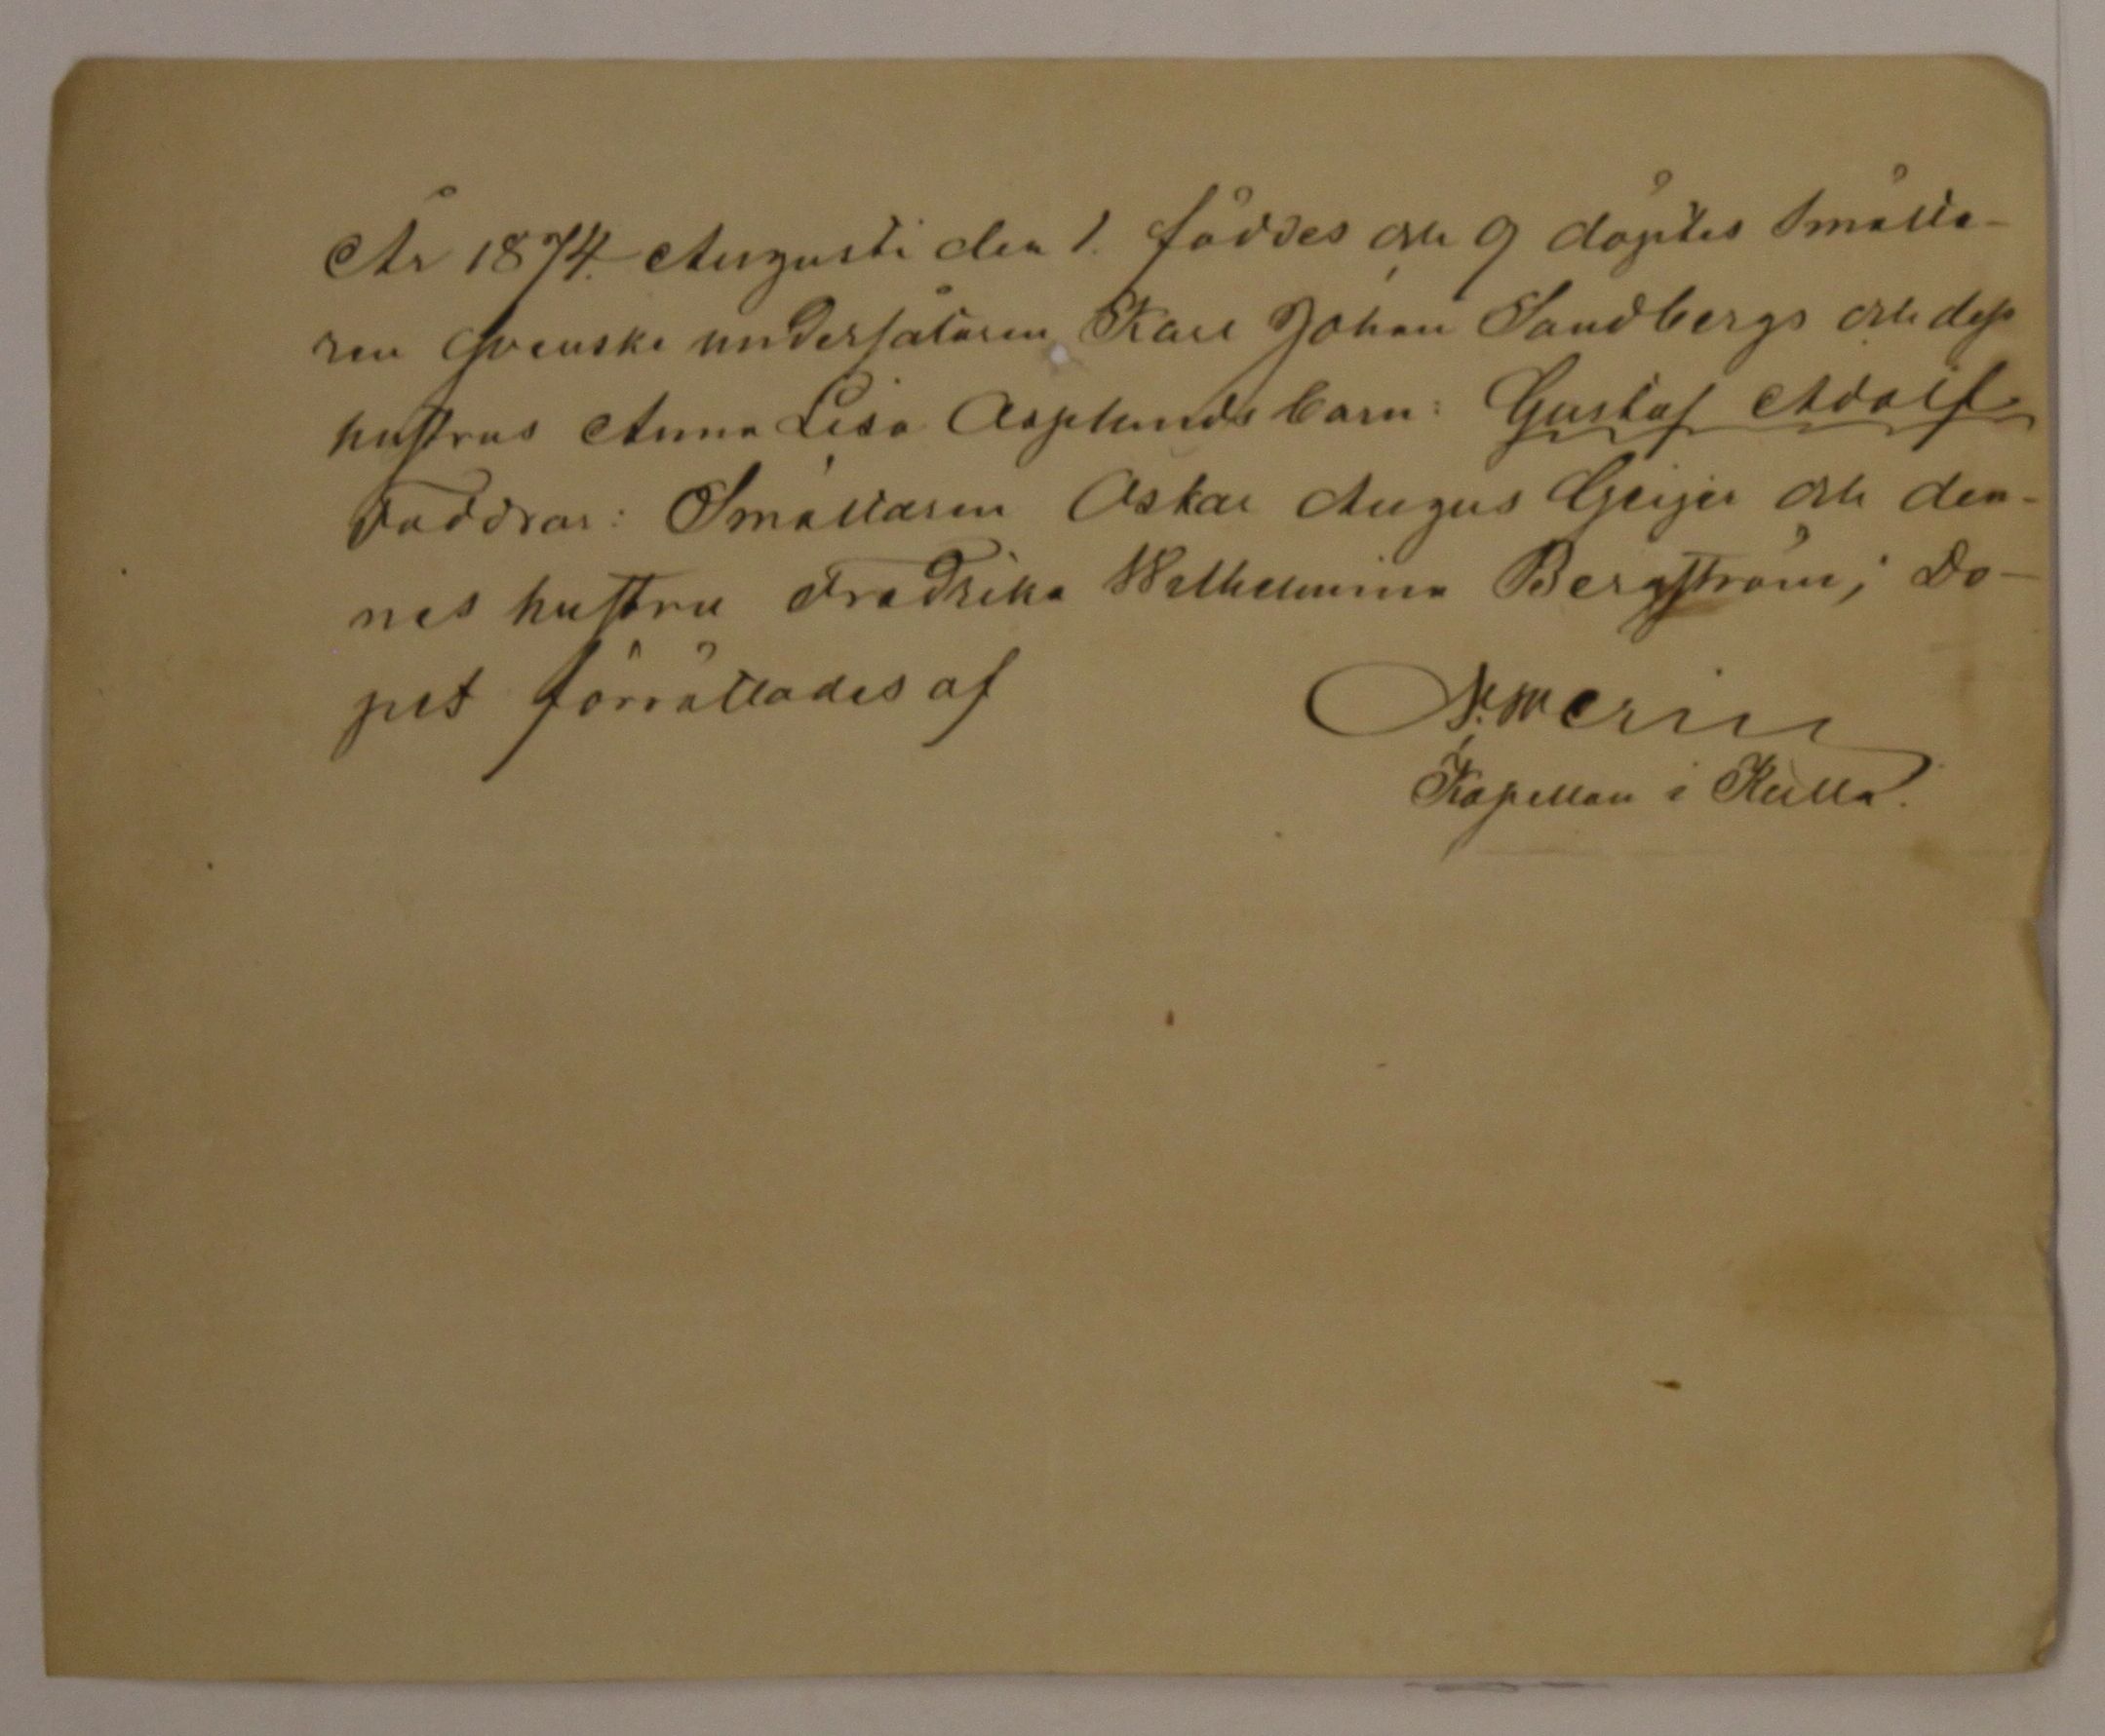 År 1874 Augusti den 1. föddes och 9 döptes Smälta-
ren Svenske undersåtaren Karl Johan Sandbergs och dess
hustrus Anna Lisa Asplunds barn: Gustaf Adolf
Faddrar: Smältaren Oskar Augus Geijer och den-
nes hustru Fredrika Wilhelmina Bergström; Do-
pet förrättades af
Kapellan i Kulla.